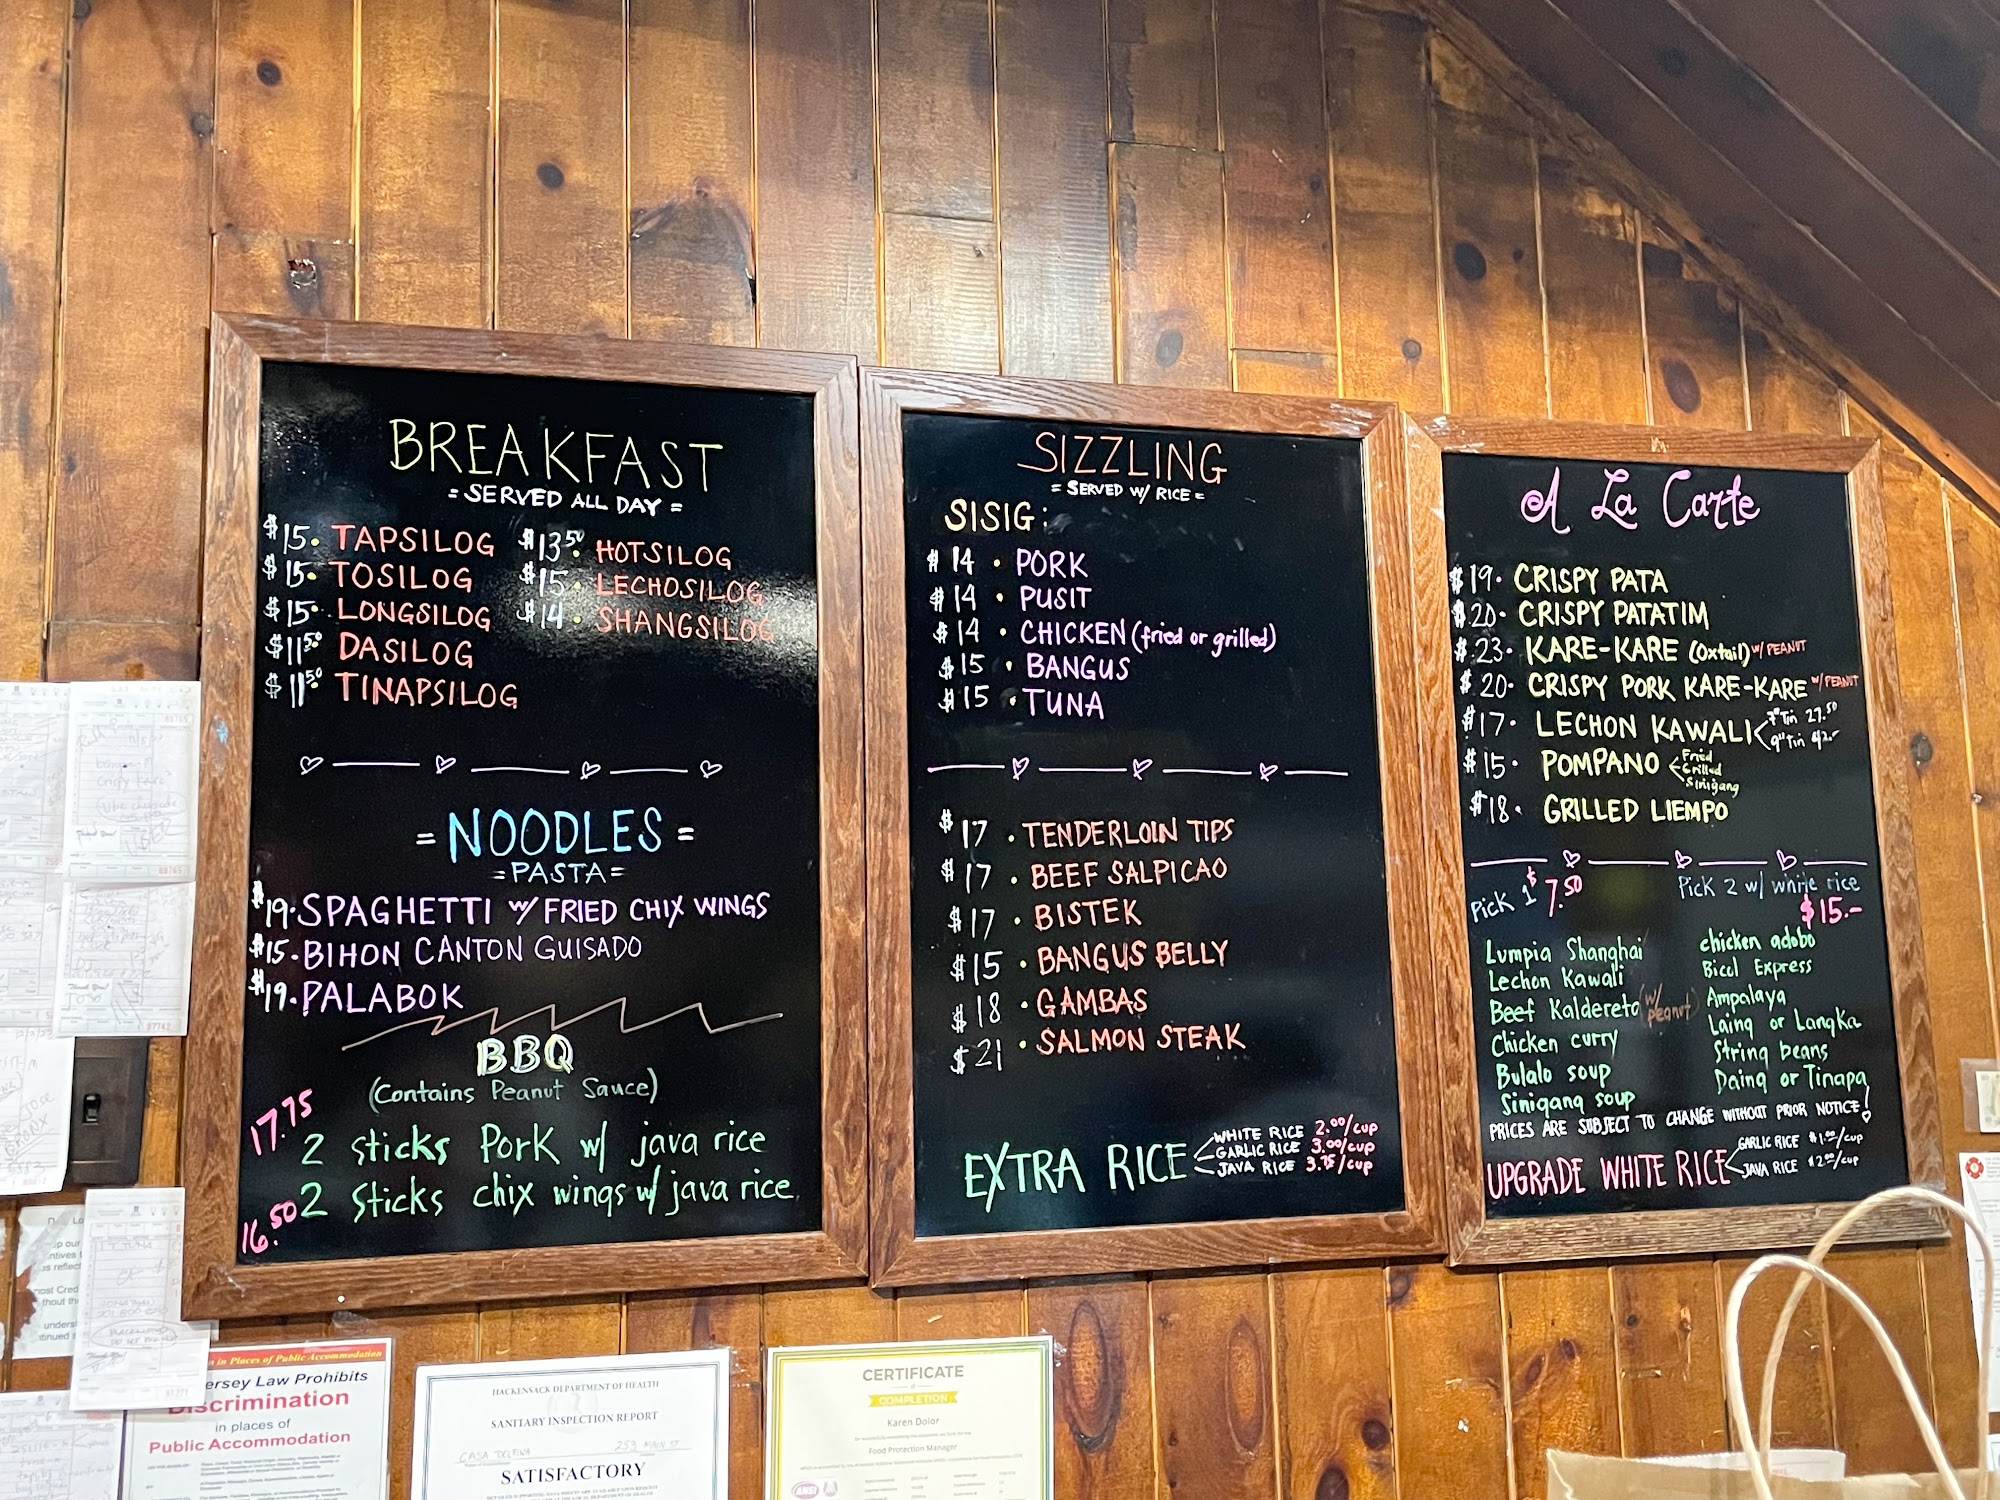 BREAKFAST
= SERVED ALL DAY =
$15. TAPSILOG
$15. TOSILOG
$15. LONGSILOG
$11.50 DASILOG
$11.50 TINAPSILOG
$13.50 HOTSILOG
$15. LECHOSILOG
$14. SHANGSILOG
= NOODLES =
= PASTA =
$19. SPAGHETTI w/ FRIED CHIX WINGS
$15. BIHON CANTON GUISADO
$19. PALABOK
BBQ
(Contains Peanut Sauce)
17.75 2 sticks Pork w/ java rice
16.50 2 sticks chix wings w/ java rice
SIZZLING
= SERVED W/ RICE =
SISIG:
$14 · PORK
$14 · PUSIT
$14 · CHICKEN (fried or grilled)
$15 · BANGUS
$15 · TUNA
$17 · TENDERLOIN TIPS
$17 · BEEF SALPICAO
$17 · BISTEK
$15 · BANGUS BELLY
$18 · GAMBAS
$21 · SALMON STEAK
EXTRA RICE
WHITE RICE 2.00/cup
GARLIC RICE 3.00/cup
JAVA RICE 3.75/cup
A La Carte
$19. CRISPY PATA
$20. CRISPY PATATIM
$23. KARE-KARE (Oxtail) w/ PEANUT
$20. CRISPY PORK KARE-KARE w/ PEANUT
$17. LECHON KAWALI
7" Tin 27.50
9" Tin 42.-
$15. POMPANO
Fried
Grilled
Sinigang
$18. GRILLED LIEMPO
Pick 1 $7.50
Pick 2 w/ white rice
$15.-
Lumpia Shanghai
Lechon Kawali
Beef Kaldereta (w/ peanut)
Chicken curry
Bulalo soup
Sinigang soup
chicken adobo
Bicol Express
Ampalaya
Laing or Langka
String beans
Daing or Tinapa
PRICES ARE SUBJECT TO CHANGE WITHOUT PRIOR NOTICE!
UPGRADE WHITE RICE
GARLIC RICE $1.00/cup
JAVA RICE $2.00/cup
in Places of Public Accommodation
ersey Law Prohibits
Discrimination
in places of
Public Accommodation
HACKENSACK DEPARTMENT OF HEALTH
SANITARY INSPECTION REPORT
253 MAIN ST
SATISFACTORY
CERTIFICATE
of
COMPLETION
Karen Dolor
Food Protection Manager
ANSI